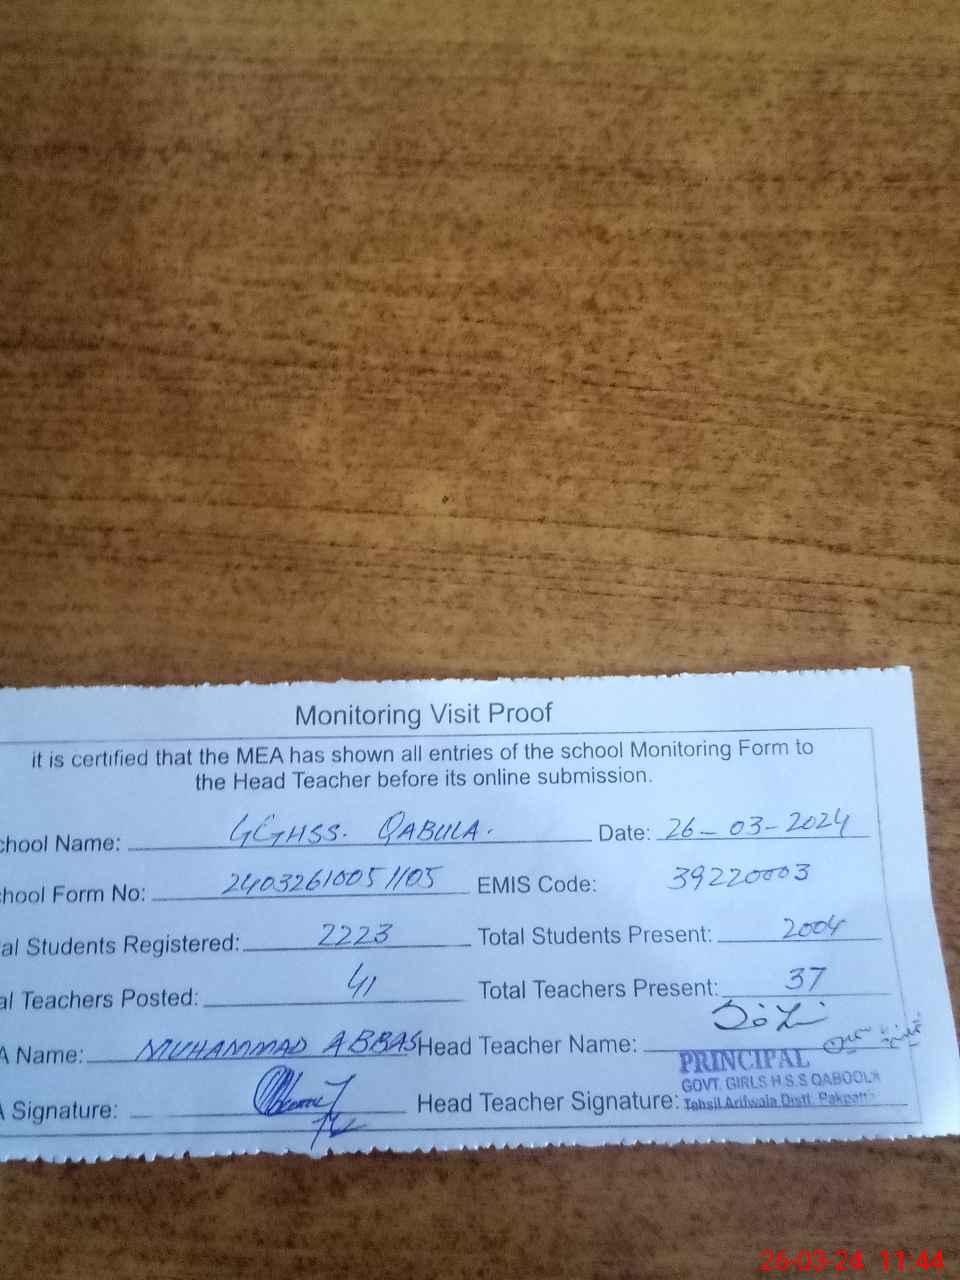 Monitoring Visit Proof
it is certified that the MEA has shown all entries of the school Monitoring Form to
the Head Teacher before its online submission.
chool Name: GGHSS. QABULA. Date: 26-03-2024
chool Form No: 24032610051105 EMIS Code: 39220003
al Students Registered: 2223 Total Students Present: 2004
al Teachers Posted: 41 Total Teachers Present: 37
A Name: MUHAMMAD ABBAS Head Teacher Name:
PRINCIPAL
GOVT. GIRLS H.S.S QABOOLA
A Signature: Head Teacher Signature: Tehsil Arifwala Distt. Pakpattan
26-03-24 11:44